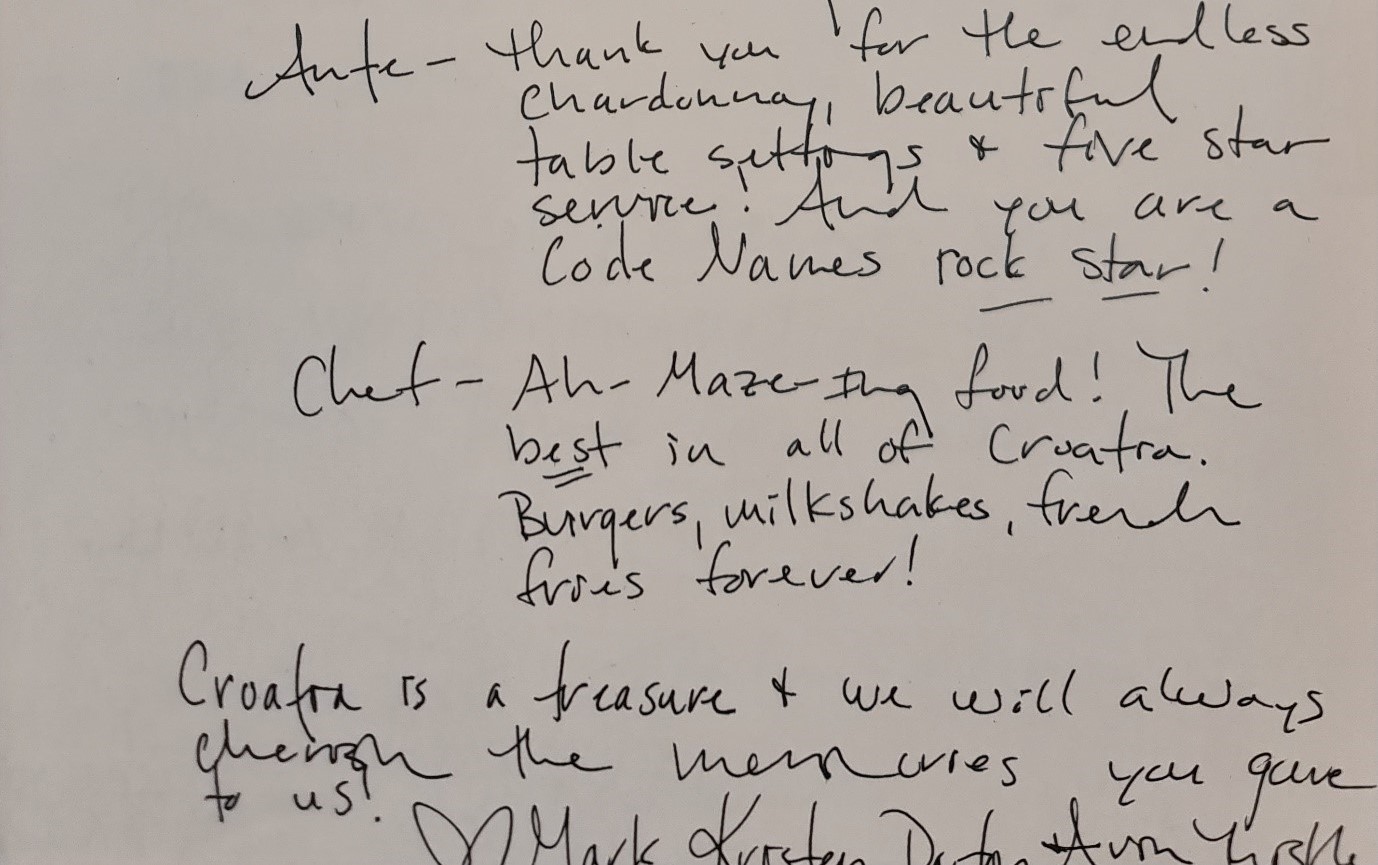 Ante - thank you for the endless
chardonnay, beautiful
table settings & five star
service! And you are a
Code Names rock star!
Chef - Ah-Maze-Ing food! The
best in all of Croatia.
Burgers, milkshakes, french
fries forever!
Croatia is a treasure & we will always
cherish the memories you gave
to us!
♡ Mark Kirsten